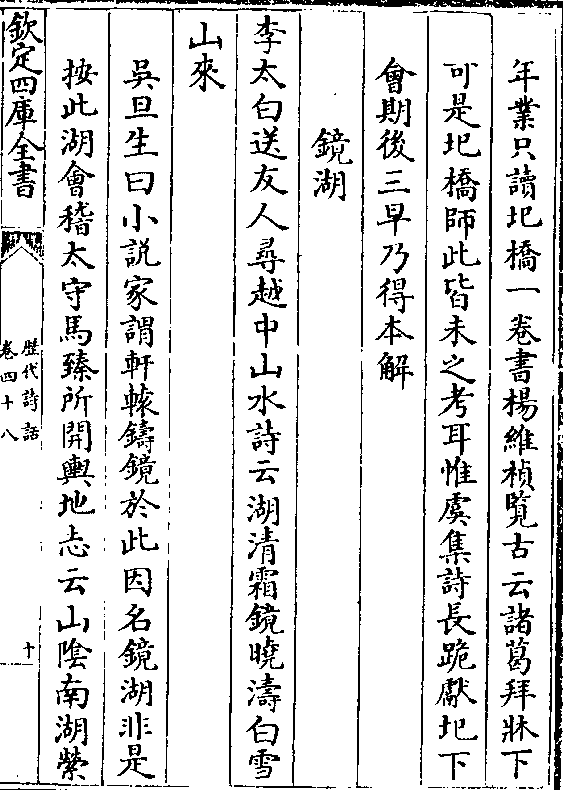 年業只讀圯橋一卷書楊維楨覽古云諸葛拜牀下
可是圯橋師此皆未之考耳惟虞集詩長跪獻圯下
會期後三早乃得本解
鏡湖
李太白送友人尋越中山水詩云湖清霜鏡曉濤白雪
山來
吳旦生曰小説家謂軒轅鑄鏡於此因名鏡湖非是
按此湖會稽太守馬臻所開輿地志云山隂南湖縈
欽定四庫全書
歴代詩話
卷四十八
十